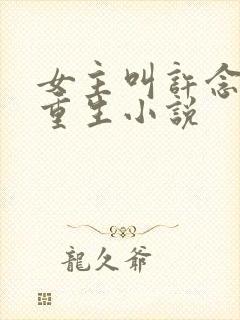 女主叫許念
重生小說
龍久爺